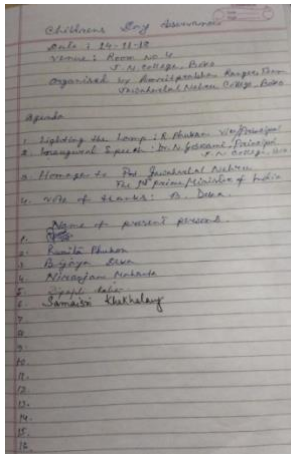 Childrens Day
Date : 14-11-18
Venue : Room No. 4
J. N. College, Boko
Organised by Ranger Team
Jawaharlal Nehru College, Boko
Agenda
1. Lighting the Lamp : R Phukan Vice Principal
2. Inaugural Speech : Dr. N Goswami, Principal
J. N. College, Boko
3. Homage to Pt. Jawaharlal Nehru
The 1st Prime Minister of India
4. Vote of thanks : B. Deka
Name of present persons.
1.
2. Phukan
3. Deka
4. Niranjan
5.
6. Khakhalary
7.
8.
9.
10.
11.
12.
13.
14.
15.
16.